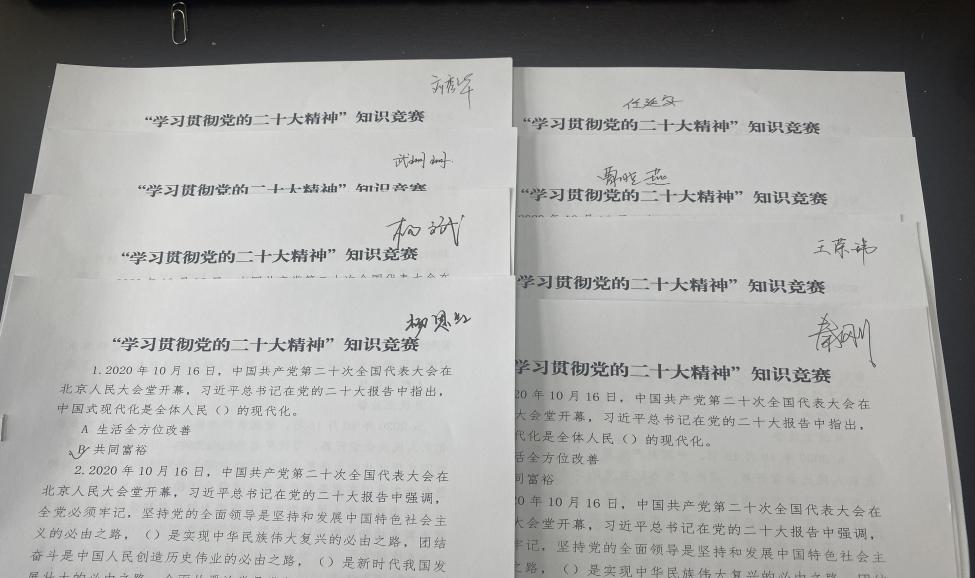 “学习贯彻党的二十大精神”知识竞赛
“学习贯彻党的二十大精神”知识竞赛
杨斌
“学习贯彻党的二十大精神”知识竞赛
杨恩红
“学习贯彻党的二十大精神”知识竞赛
1.2020年10月16日，中国共产党第二十次全国代表大会在
北京人民大会堂开幕，习近平总书记在党的二十大报告中指出，
中国式现代化是全体人民（）的现代化。
A 生活全方位改善
B 共同富裕
2.2020年10月16日，中国共产党第二十次全国代表大会在
北京人民大会堂开幕，习近平总书记在党的二十大报告中强调，
全党必须牢记，坚持党的全面领导是坚持和发展中国特色社会主
义的必由之路，（）是实现中华民族伟大复兴的必由之路，团结
奋斗是中国人民创造历史伟业的必由之路，（）是新时代我国发
任延文
“学习贯彻党的二十大精神”知识竞赛
“学习贯彻党的二十大精神”知识竞赛
王荣玮
学习贯彻党的二十大精神”知识竞赛
秦刚
学习贯彻党的二十大精神”知识竞赛
20年10月16日，中国共产党第二十次全国代表大会在
大会堂开幕，习近平总书记在党的二十大报告中指出，
代化是全体人民（）的现代化。
活全方位改善
同富裕
0年10月16日，中国共产党第二十次全国代表大会在
大会堂开幕，习近平总书记在党的二十大报告中强调，
牢记，坚持党的全面领导是坚持和发展中国特色社会主
之路，（）是实现中华民族伟大复兴的必由之路，团结